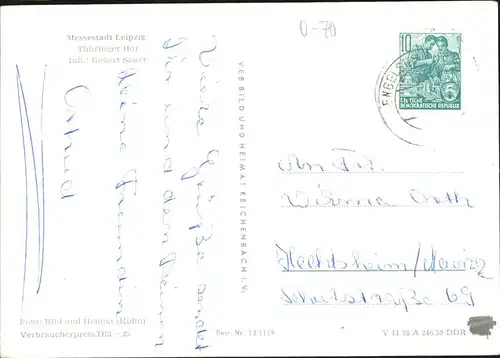 Messestadt Leipzig
Thüringer Hof
Inh.: Robert Sauer
0-70
10
DEUTSCHE
DEMOKRATISCHE REPUBLIK
ENGELS
Viele Grüße sendet
Dir und den Deinen
Deine Freundin
VEB BILD UND HEIMAT REICHENBACH I. V.
An Frl.
Wilma
Hechtsheim/Mainz
Schulstraße 69
Foto: Bild und Heimat (Kühn)
Verbraucherpreis DM -,25
Best. Nr. 13/1119
V 11 28 A 246/59 DDR